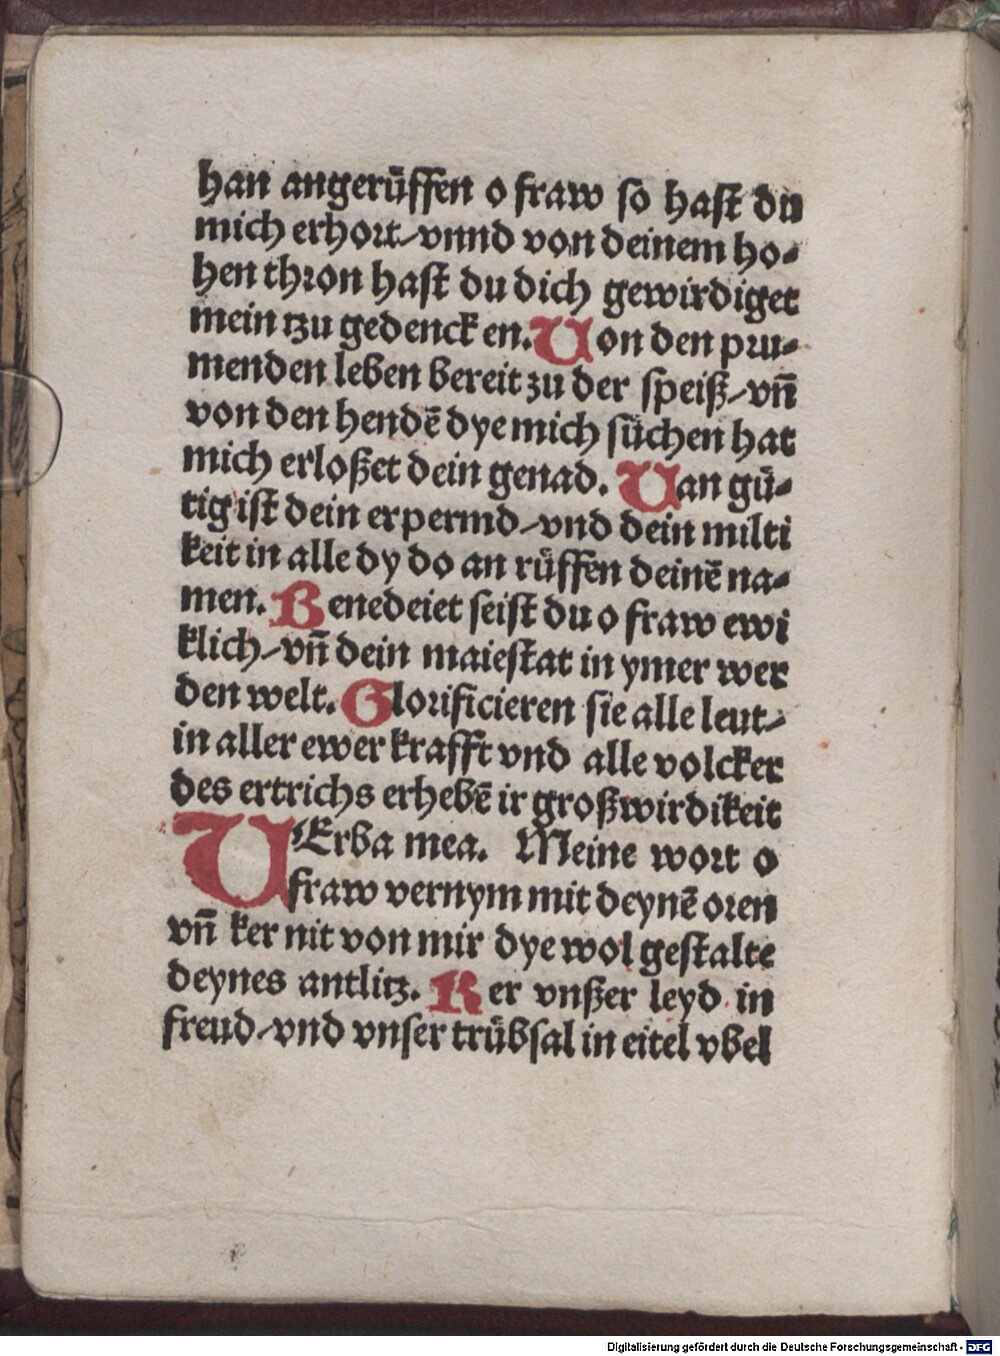 han angerůffen o fraw so hast du
mich erhort/vnnd von deinem ho⸗
hen thron hast du dich gewirdiget
mein tzu gedencken. Von den pru⸗
menden leben bereit zu der speiß/vñ
von den hendē dye mich sůchen hat
mich erloßet dein genad. Van gů⸗
tig ist dein erpermd/vnd dein milti
keit in alle dy do an růffen deinē na⸗
men. Benedeiet seist du o fraw ewi
klich/vñ dein maiestat in ymer wer
den welt. Glorificieren sie alle leut/
in aller ewer krafft vnd alle volcker
des ertrichs erhebē ir großwirdikeit
VErba mea. Meine wort o
fraw vernym mit deynē oren
vñ ker nit von mir dye wol gestalte
deynes antlitz. Ker vnßer leyd in
freud/vnd vnser trůbsal in eitel vbel
Digitalisierung gefördert durch die Deutsche Forschungsgemeinschaft - DFG